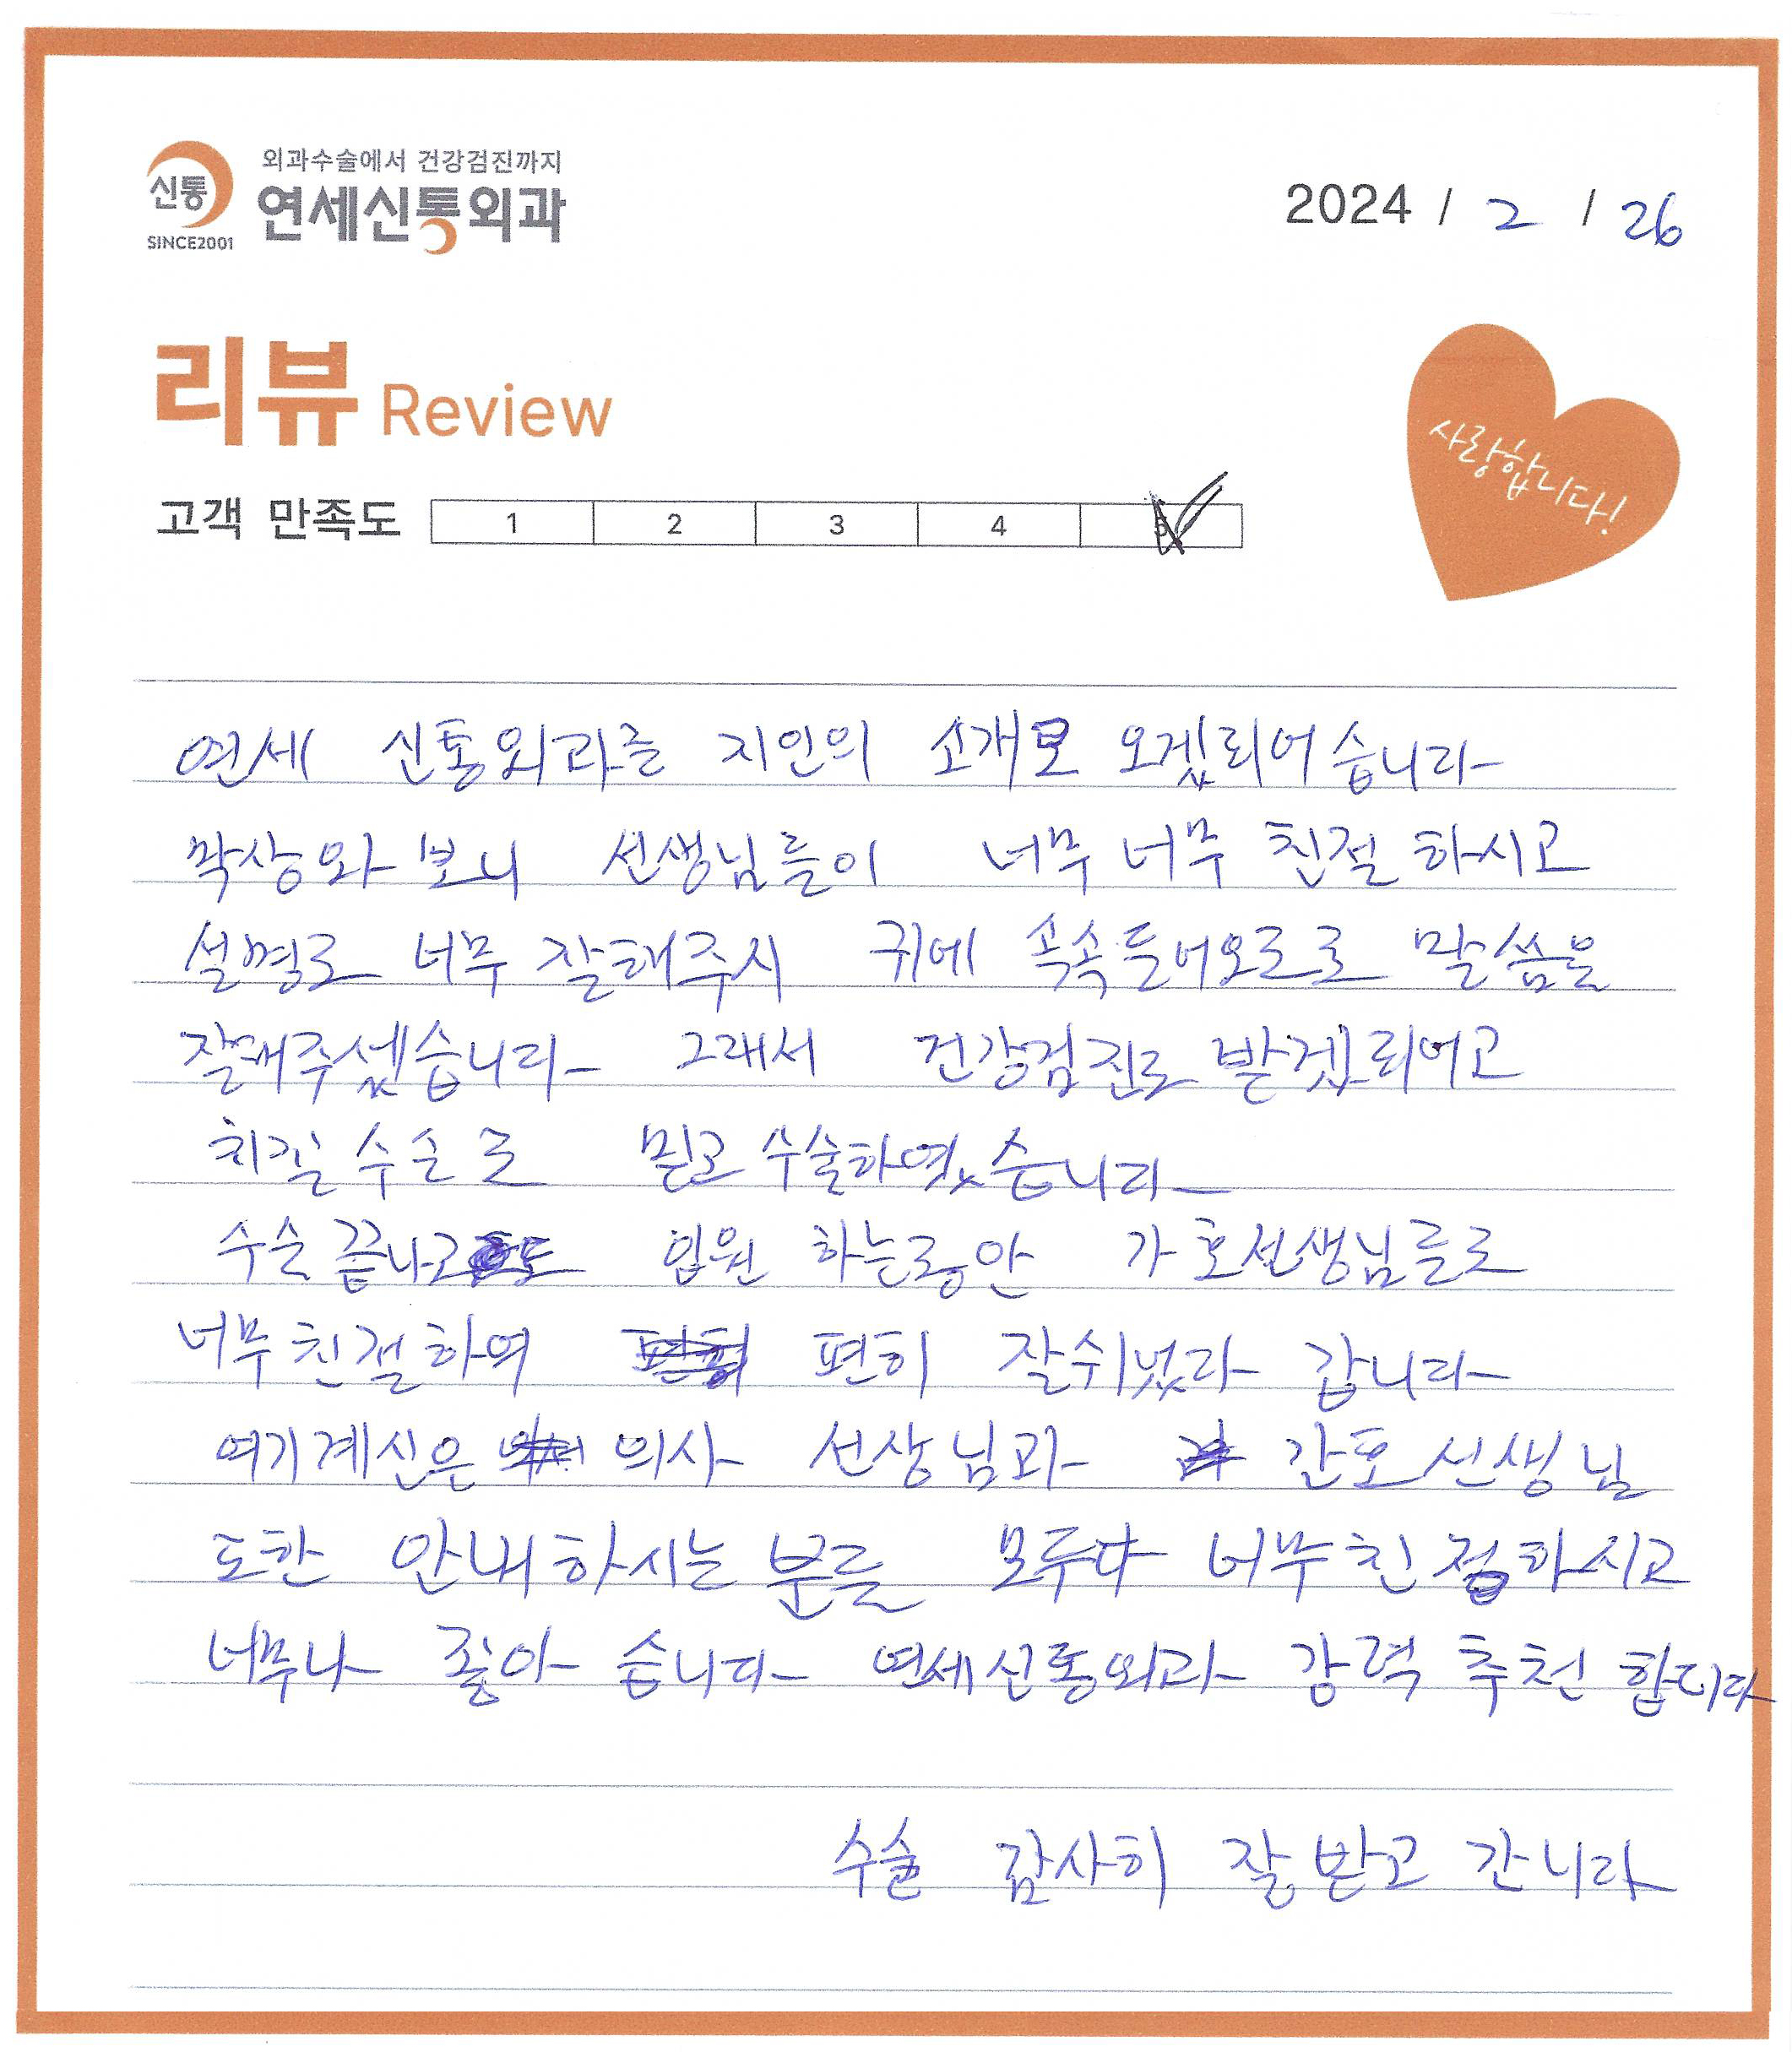 외과수술에서 건강검진까지
신통
연세신통외과
SINCE2001
2024 / 2 / 26
리뷰 Review
사랑합니다!
고객 만족도 1 2 3 4 5
연세 신통외과를 지인의 소개로 오겠되어습니다
막상와 보니 선생님들이 너무 너무 친절 하시고
설명도 너무 잘해주시 귀에 속속 들어오도록 말씀을
잘해주셨습니다 그래서 건강검진도 받겠되어고
치질 수술도 믿고 수술하였습니다
수술 끝나고도 입원 하는동안 가호선생님들도
너무 친절하여 편히 잘쉬었다 갑니다
여기계신은 의사 선생님과 간호선생님
또한 안내하시는 분들 모두다 너무친절하시고
너무나 좋아 습니다 연세신통외과 강력 추천 합니다
수술 감사히 잘 받고 간니다